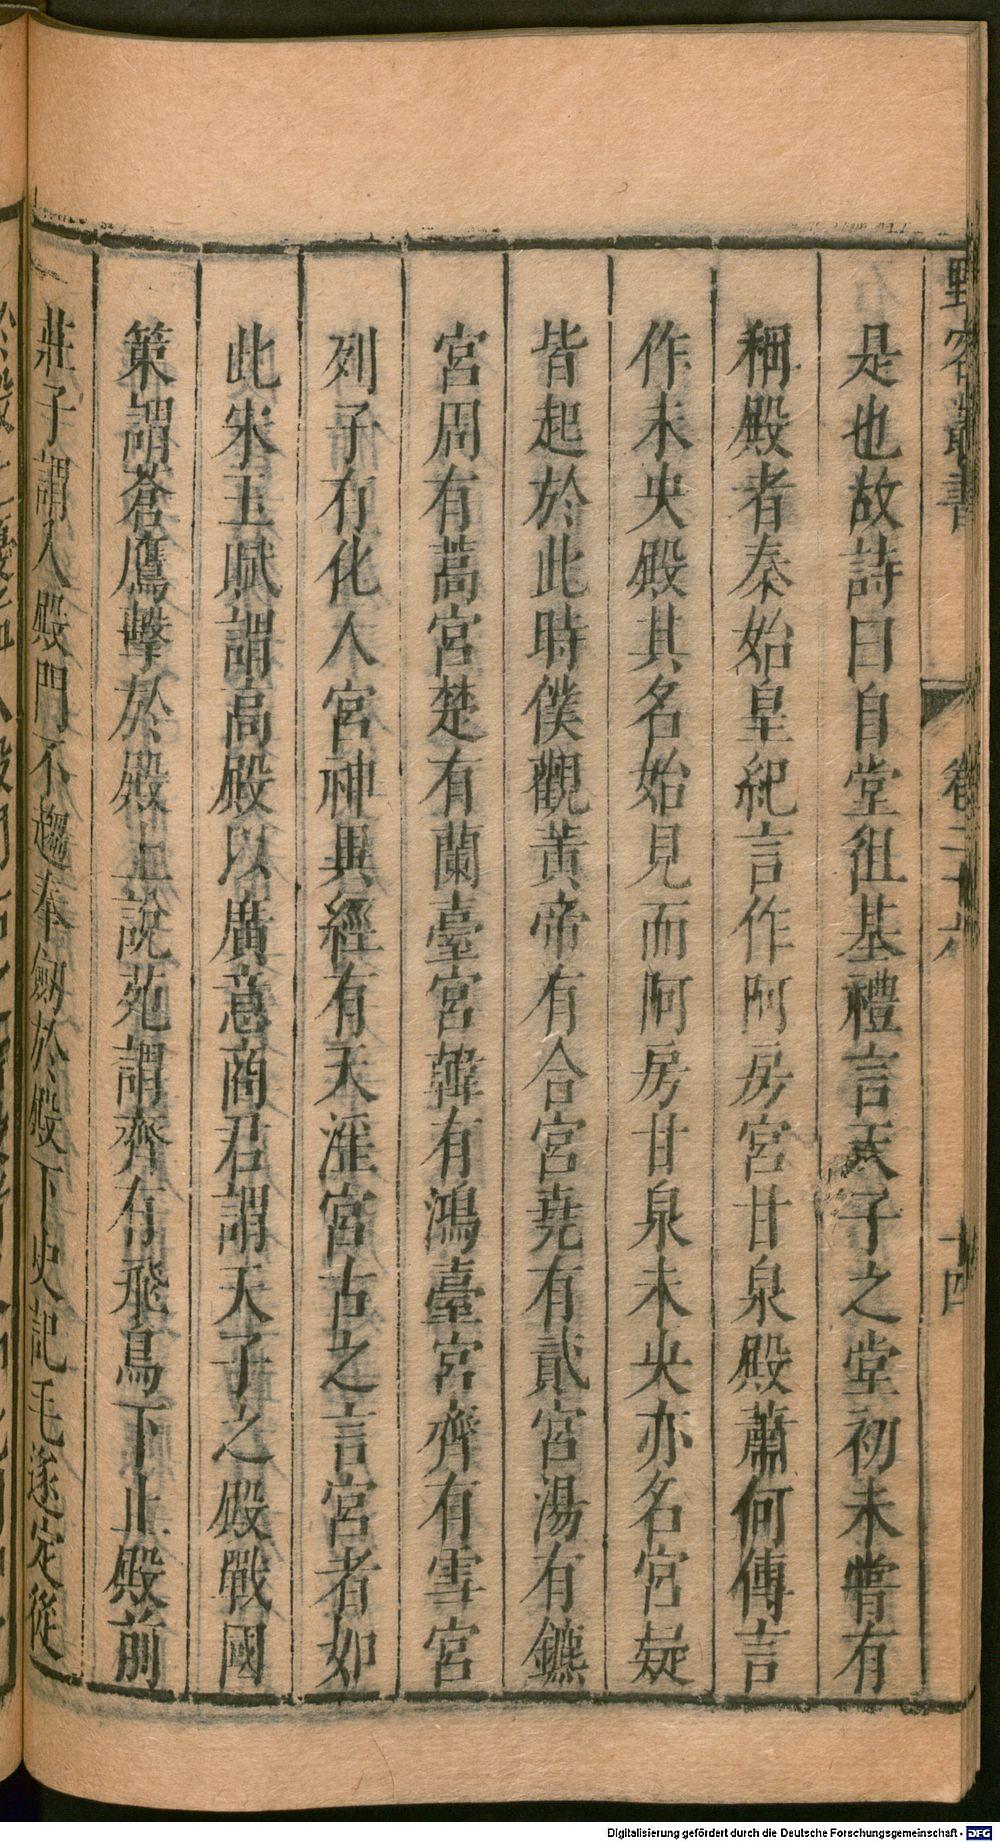 野客叢書
卷二十六
十四
是也故詩曰自堂徂基禮言天子之堂初未嘗有
稱殿者秦始皇紀言作阿房宮甘泉殿蕭何傳言
作未央殿其名始見而阿房甘泉未央亦名宮疑
皆起於此時僕觀黃帝有合宮堯有貳宮湯有鑣
宮周有蒿宮楚有蘭臺宮韓有鴻臺宮齊有雪宮
列子有化人宮神異經有天涯宮古之言宮者如
此宋玉賦謂高殿以廣意商君謂天子之殿戰國
策謂蒼鷹擊於殿上說苑謂齊有飛鳥下止殿前
莊子謂入殿門不趨奉劒於殿下史記毛遂定從
Digitalisierung gefördert durch die Deutsche Forschungsgemeinschaft - DFG